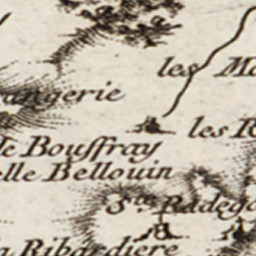 les Ma
angerie
les R
le Bouffray
elle Bellouin
Ste Radego
a Ribardiere